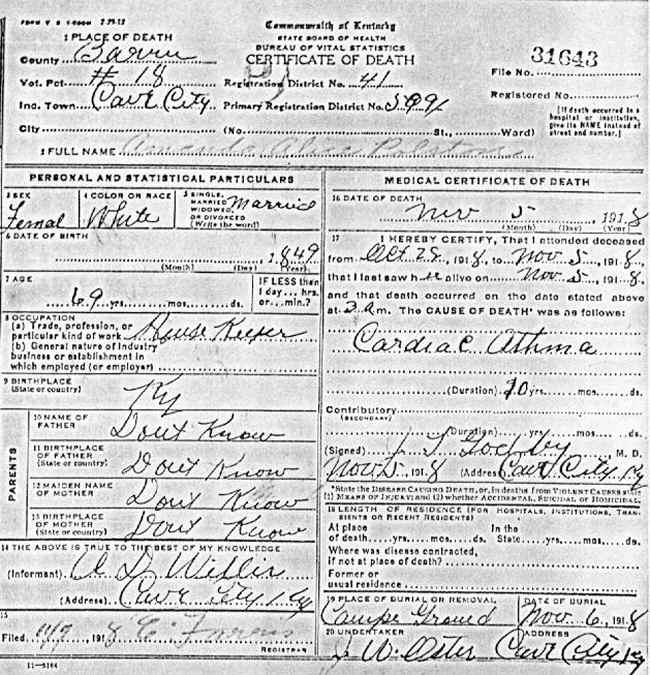 Commonwealth of Kentucky
STATE BOARD OF HEALTH
BUREAU OF VITAL STATISTICS
CERTIFICATE OF DEATH
1 PLACE OF DEATH
County Barren
Vot. Pct. # 18 Registration District No. 41
Inc. Town Cave City Primary Registration District No.
File No. 31643
Registered No.
[If death occurred in a hospital or institution, give its NAME instead of street and number.]
City (No. St., Ward)
2 FULL NAME Amanda Alice
PERSONAL AND STATISTICAL PARTICULARS
3 SEX Femal
4 COLOR OR RACE White
5 SINGLE, MARRIED, WIDOWED, OR DIVORCED (Write the word) Married
6 DATE OF BIRTH 1849
(Month) (Day) (Year)
7 AGE 69 yrs. mos. ds.
IF LESS than 1 day... hrs. or... min.?
8 OCCUPATION
(a) Trade, profession, or particular kind of work House Keeper
(b) General nature of industry
business or establishment in
which employed (or employer)
9 BIRTHPLACE
(State or country) Ky
PARENTS
10 NAME OF FATHER Dont Know
11 BIRTHPLACE OF FATHER (State or country) Dont Know
12 MAIDEN NAME OF MOTHER Dont Know
13 BIRTHPLACE OF MOTHER (State or country) Dont Know
14 THE ABOVE IS TRUE TO THE BEST OF MY KNOWLEDGE
(Informant) Willis
(Address) Cave City Ky
15
Filed 11/9 1918
REGISTRAR
11—3184
MEDICAL CERTIFICATE OF DEATH
16 DATE OF DEATH
Nov 5, 1918
(Month) (Day) (Year)
17 I HEREBY CERTIFY, That I attended deceased
from Oct 25, 1918, to Nov 5, 1918,
that I last saw h alive on Nov 5, 1918,
and that death occurred on the date stated above
at m. The CAUSE OF DEATH* was as follows:
Cardiac Asthma
(Duration) 10 yrs. mos. ds.
Contributory
(SECONDARY)
(Duration) yrs. mos. ds.
(Signed) M. D.
Nov 5, 1918 (Address) Cave City Ky
*State the DISEASE CAUSING DEATH, or, in deaths from VIOLENT CAUSES state
(1) MEANS OF INJURY; and (2) whether ACCIDENTAL, SUICIDAL or HOMICIDAL.
18 LENGTH OF RESIDENCE (FOR HOSPITALS, INSTITUTIONS, TRANSIENTS OR RECENT RESIDENTS)
At place of death yrs. mos. ds. In the State yrs. mos. ds.
Where was disease contracted,
if not at place of death?
Former or
usual residence
19 PLACE OF BURIAL OR REMOVAL
Camp Ground
DATE OF BURIAL
Nov. 6, 1918
20 UNDERTAKER
ADDRESS
Cave City Ky